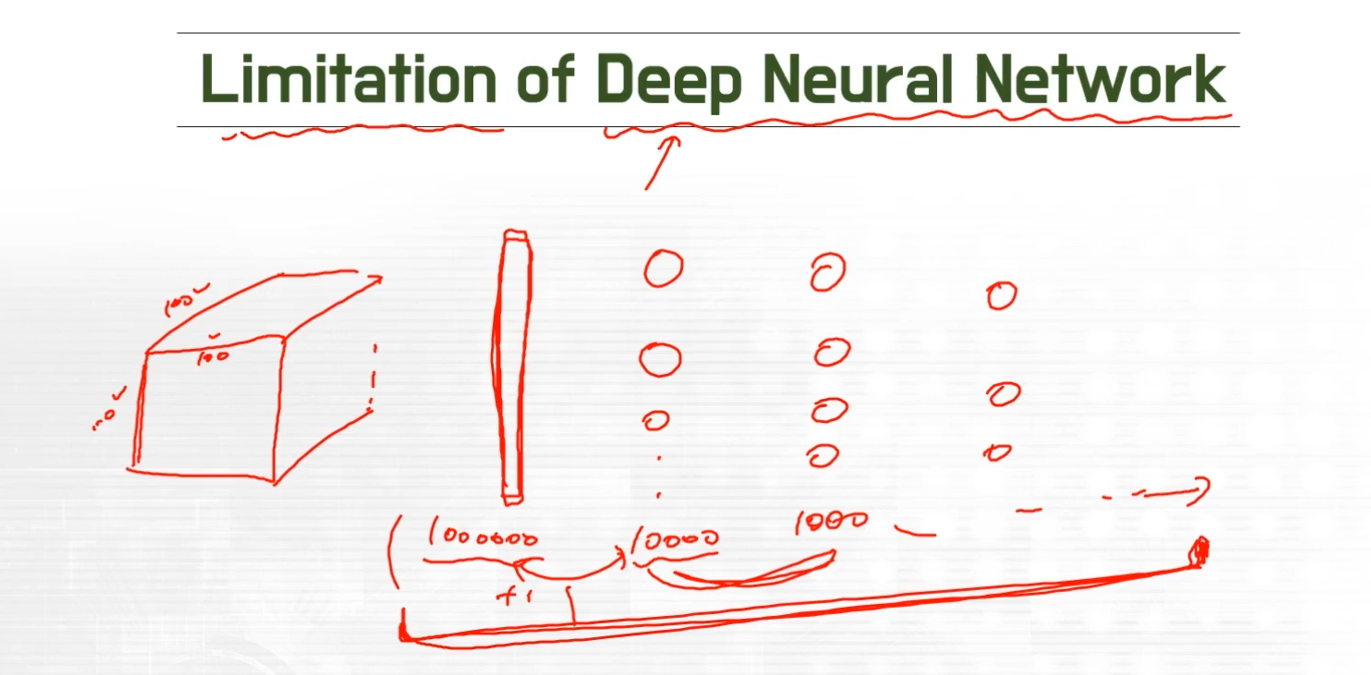 Limitation of Deep Neural Network
100
100
100
1000000
10000
1000
+1